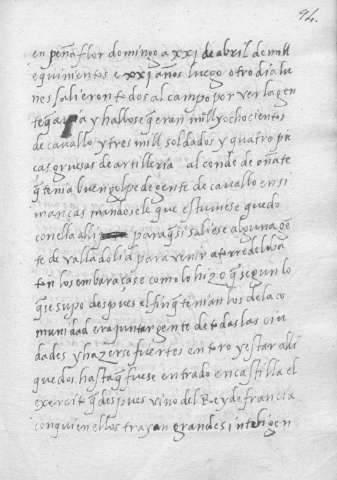 94.
en peñaflor domingo a xxj de abril de mill
e quinientos e xxj años luego otro dia lu
nes salieron todos al campo por ver la gen
te q̃ avia y hallose q̃ eran mill y ochocientos
de cavallo y tres mill soldados y quatro pie
ças gruesas de artilleria al conde de oñate
q̃ tenia buen golpe de gente de cavallo en si
mancas mandosele que estuviese quedo
con ella alli para q̃ si saliese alguna gẽ
te de valladolid para yr a torre de loba
ton los embaraçase como lo hizo q̃ segun lo
q̃ se supo despues el fin q̃ tenian los de la co
munidad era juntar gente de todas las ciu
dades y hazerse fuertes en toro y estar alli
quedos hasta q̃ fuese entrado en castilla el
exercito q̃ despues vino del Rey de francia
con quien ellos trayan grandes inteligen